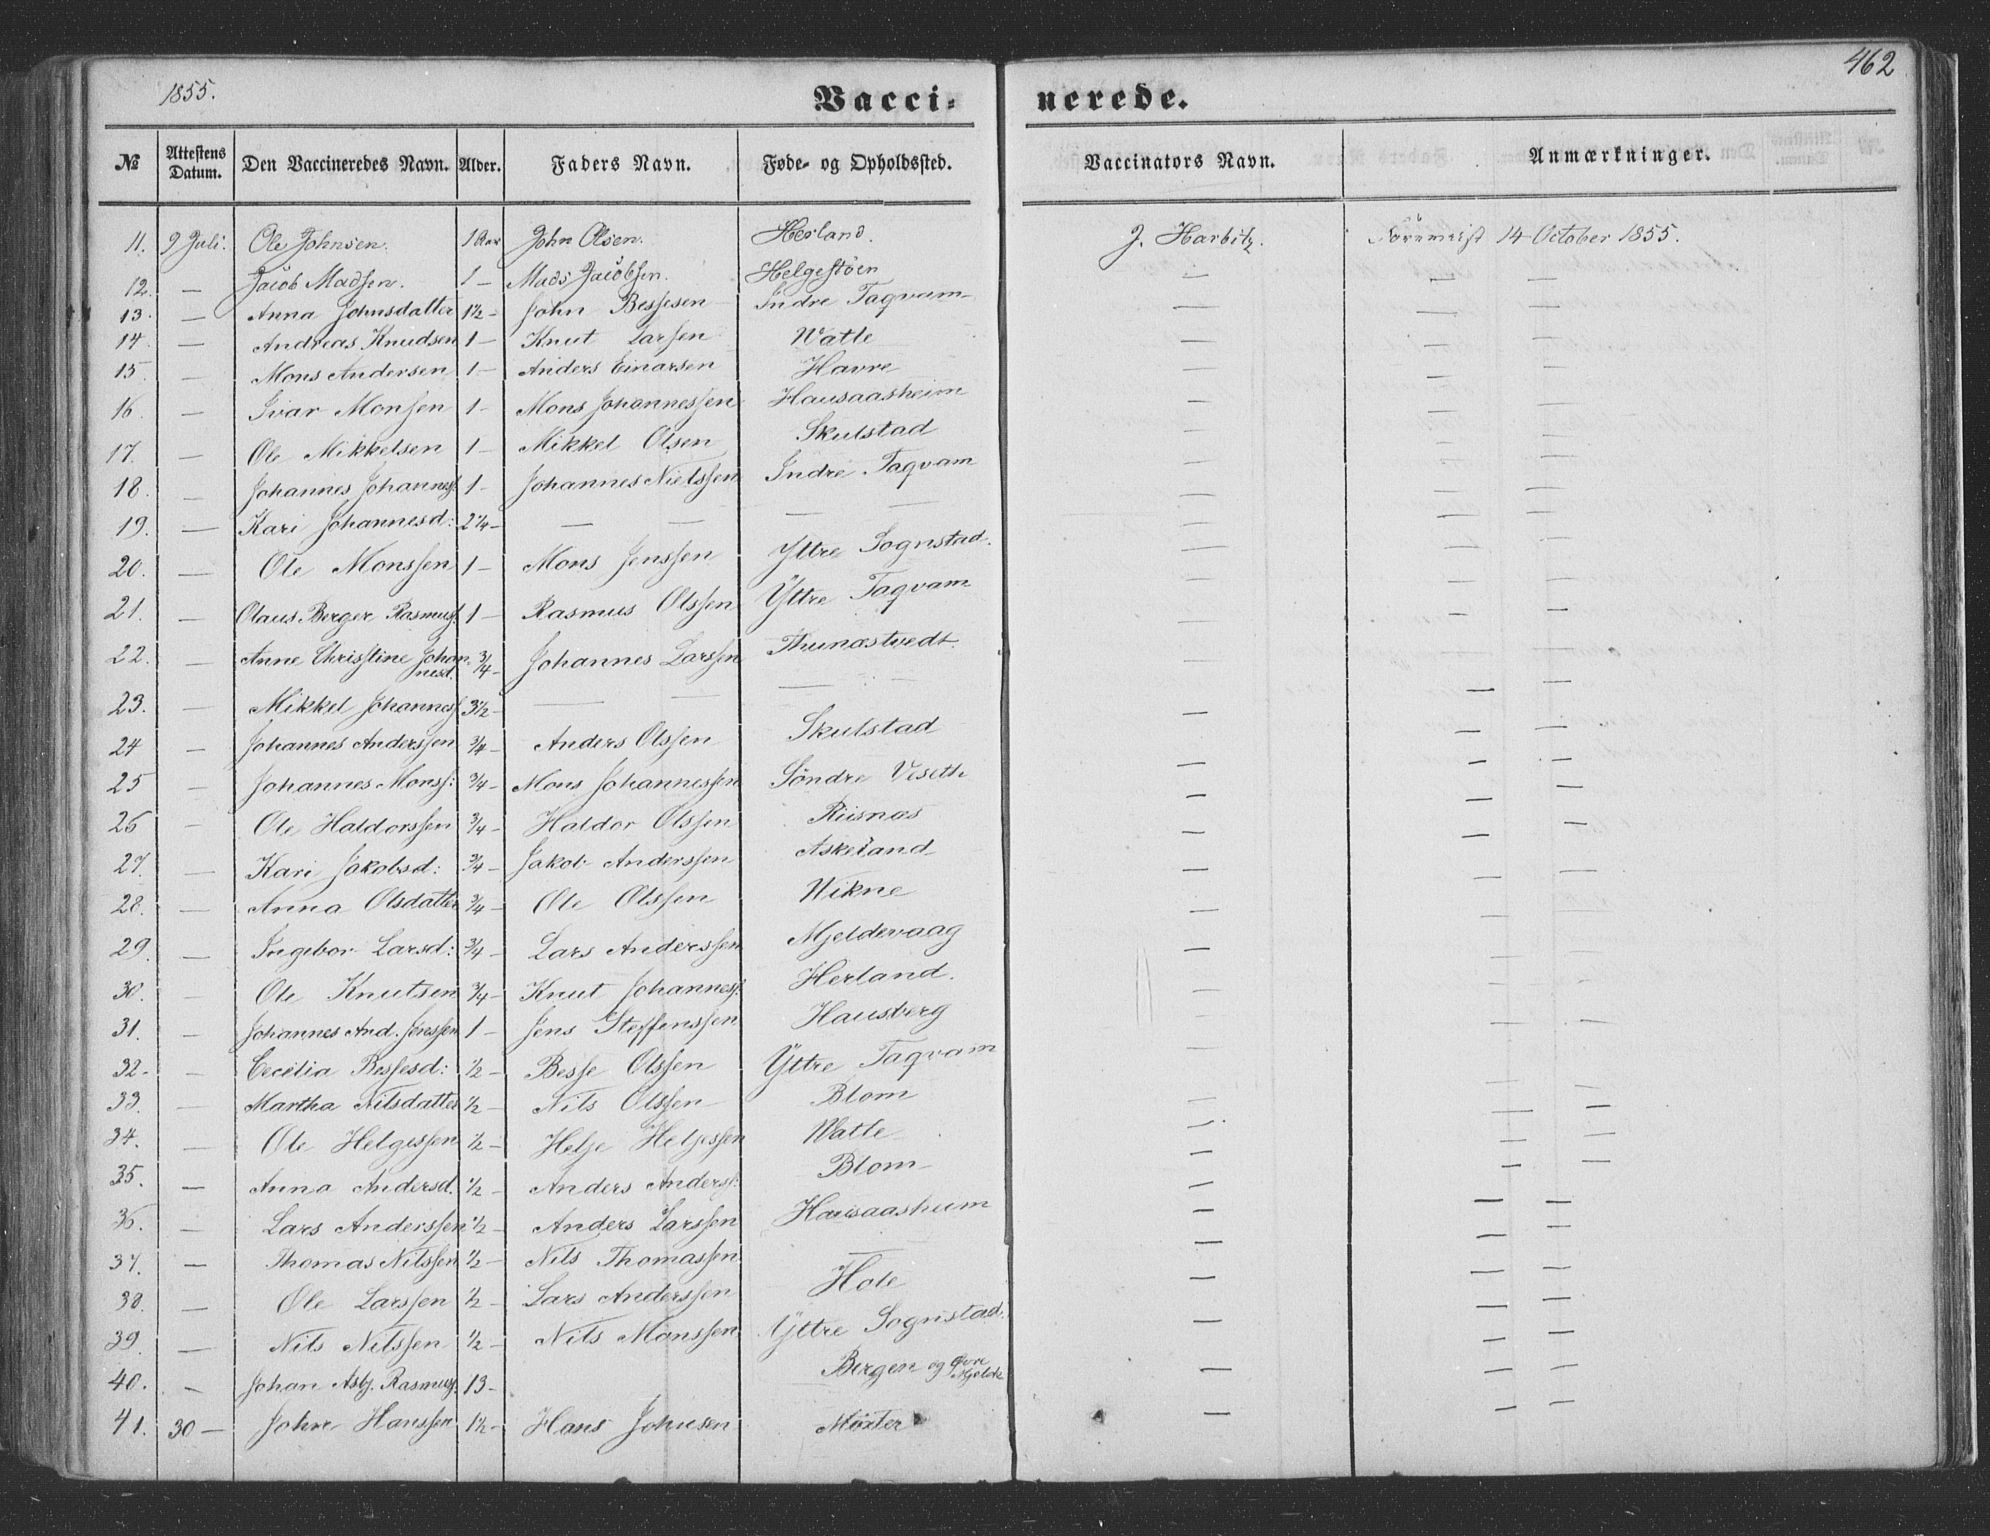 462
1855.
Vacci- nerede.
№ Attestens Datum. Den Vaccineredes Navn. Alder. Faders Navn. Føde- og Opholdssted. Vaccinators Navn. Anmærkninger.
11. 9 Juli. Ole Johnsen. 1 Aar John Olsen. Herland. J. Harbitz. 14 October 1855.
12. — Jacob Madsen. 1 — Mads Jacobsen. Helgestöen — — —
13. — Anna Johnsdatter 1½ — John Bessesen Indre Taqvam — — —
14. — Andreas Knudsen 1 — Knut Larsen Watle — — —
15. — Mons Andersen 1 — Anders Einarsen Havre — — —
16. — Ivar Monsen 1 — Mons Johannessen Hausaasheim — — —
17. — Ole Mikkelsen 1 — Mikkel Olsen Skulstad — — —
18. — Johannes Johanness. 1 — Johannes Nielssen Indre Taqvam — — —
19. — Kari Johannesd: 2¼ — — — — — — — —
20. — Ole Monssen 1 — Mons Jenssen Yttre Sognstad. — — —
21. — Olaus Berger Rasmuss. 1 — Rasmus Olssen Yttre Taqvam — — —
22. — Anne Christine Johan- ¾ — Johannes Larssen Thunastvedt. — — —
nesd.
23. — Mikkel Johanness. 3½ — — — — — — —
24 — Johannes Anderssen ¾ — Anders Olssen Skulstad — — —
25 — Johannes Monss: ¾ — Mons Johannessen Söndre Viseth — — —
26 — Ole Haldorssen ¾ — Haldor Olssen Riisnæs — — —
27. — Kari Jakobsd: ¾ — Jakob Anderssen Askeland — — —
28. — Anna Olsdatter ¾ — Ole Olssen Wikne — — —
29. — Ingebor Larsd: ¾ — Lars Anderssen Mjeldevaag — — —
30. — Ole Knutsen ¾ — Knut Johanness: Herland. — — —
31. — Johannes And. Jenssen 1 — Jens Steffenssen Hausberg — — —
32 — Cecilia Bessesd: ½ — Besse Olssen Yttre Taqvam — — —
33. — Martha Nilsdatter ½ — Nils Olssen Blom — — —
34. — Ole Helgessen ½ — Helje Heljessen Watle — — —
35. — Anna Andersd. ½ — Anders Anderss: Blom — — —
36. — Lars Anderssen ½ — Anders Larssen Hausaasheim — — —
37. — Thomas Nilssen ½ — Nils Thomassen — — —
38. — Ole Larssen ½ — Lars Anderssen Hole — — —
39. — Nils Nilssen ½ — Nils Monssen Yttre Sognstad. — — —
40. — Johan Asbj. Rasmuss. 13 — Bergen og Övre Mjelde — — —
41. 30 — John Hanssen 1½ — Hans Johnsen Möster — — —